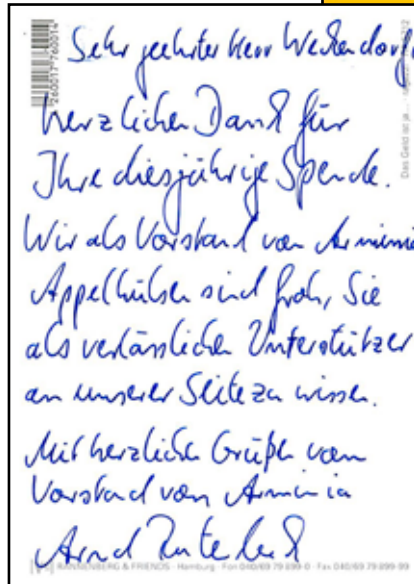 Sehr geehrter Herr Weckendorf,
herzlichen Dank für
Ihre diesjährige Spende.
Wir als Vorstand von Arminia
Appelhülsen sind froh, Sie
als verlässlichen Unterstützer
an unserer Seite zu wissen.
Mit herzlichen Grüßen vom
Vorstand von Arminia
Arnd
RANNENBERG & FRIENDS · Hamburg · Fon 040/69 79 899-0 · Fax 040/69 79 899-99
Das Geld ist ja